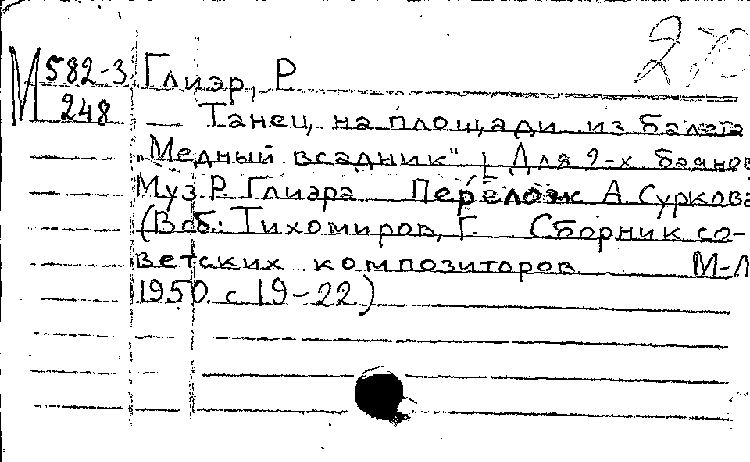 М 582-3 Глиэр, Р.
248 — Танец на площади из балета
"Медный всадник" | Для 2-х баянов
Муз Р. Глиэра Перелож А. Суркова
(В сб.: Тихомиров, Г. Сборник со-
ветских композиторов М-Л
1950 с 19-22)